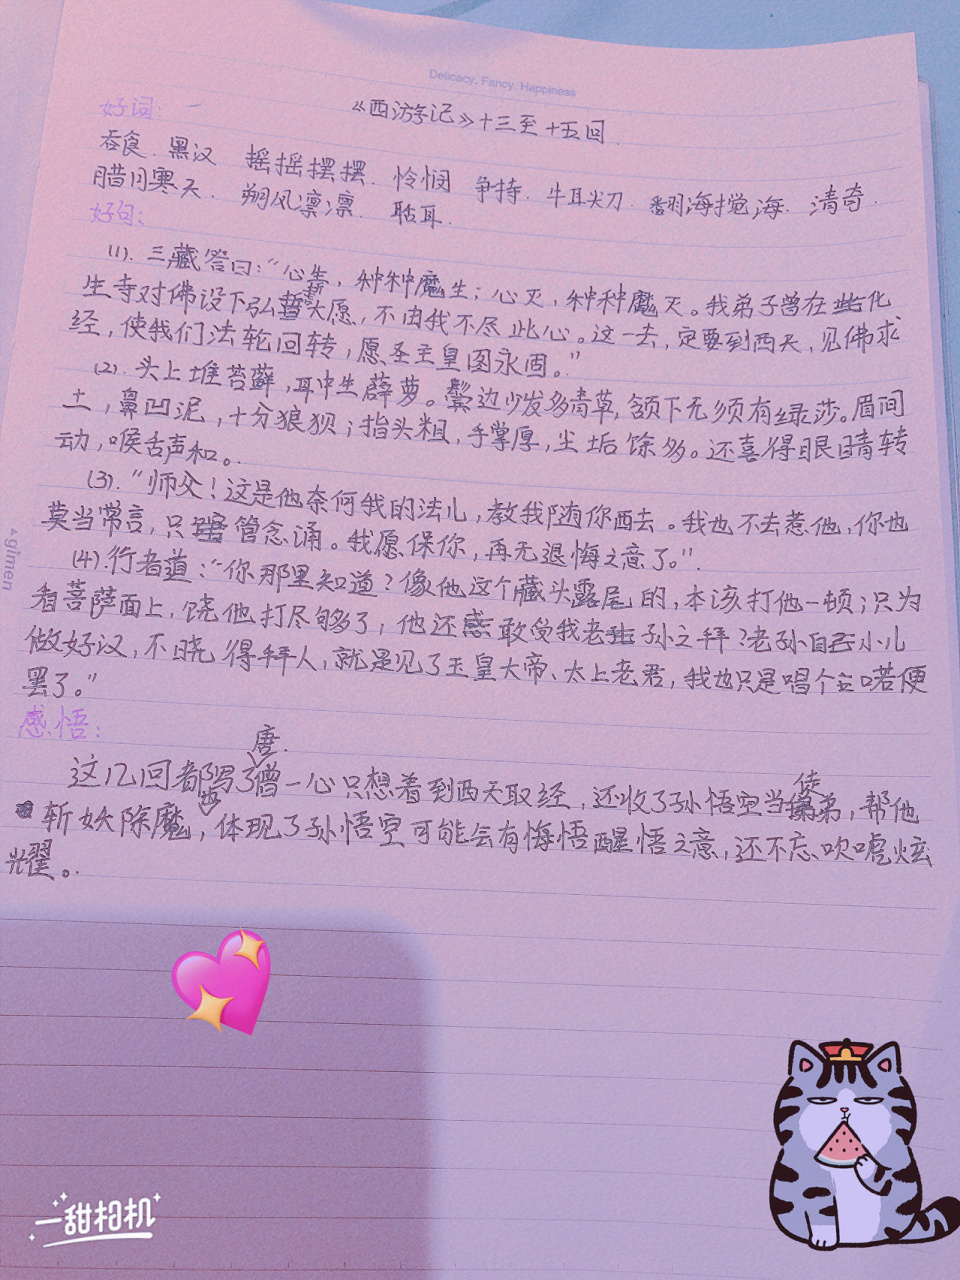 Delicacy, Fancy, Happiness
《西游记》十三至十五回.
好词:
吞食. 黑汉 摇摇摆摆. 怜悯 争持. 牛耳尖刀. 翻海搅海. 清奇.
腊月寒天. 朔风凛凛. 聒耳.
好句:
(1). 三藏答曰:“心生, 种种魔生; 心灭, 种种魔灭。我弟子曾在化
生寺对佛设下弘誓大愿, 不由我不尽此心。这一去, 定要到西天, 见佛求
经, 使我们法轮回转, 愿圣主皇图永固。”
(2). 头上堆苔藓, 耳中生薜萝。鬓边少发多青草, 颔下无须有绿莎。眉间
土, 鼻凹泥, 十分狼狈; 指头粗, 手掌厚, 尘垢馀多。还喜得眼睛转
动, 喉舌声和。
(3). “师父! 这是他奈何我的法儿, 教我随你西去。我也不去惹他, 你也
莫当常言, 只管念诵。我愿保你, 再无退悔之意了。”.
(4). 行者道:“你那里知道? 像他这个藏头露尾的, 本该打他一顿; 只为
看菩萨面上, 饶他打尽够了, 他还敢受我老孙之拜? 老孙自小儿
做好汉, 不晓得拜人, 就是见了玉皇大帝、太上老君, 我也只是唱个喏便
罢了。”
感悟:
这几回都写了唐僧一心只想着到西天取经, 还收了孙悟空当徒弟, 帮他
斩妖除魔, 也体现了孙悟空可能会有悔悟醒悟之意, 还不忘吹嘘炫
耀。
agimen
一甜相机